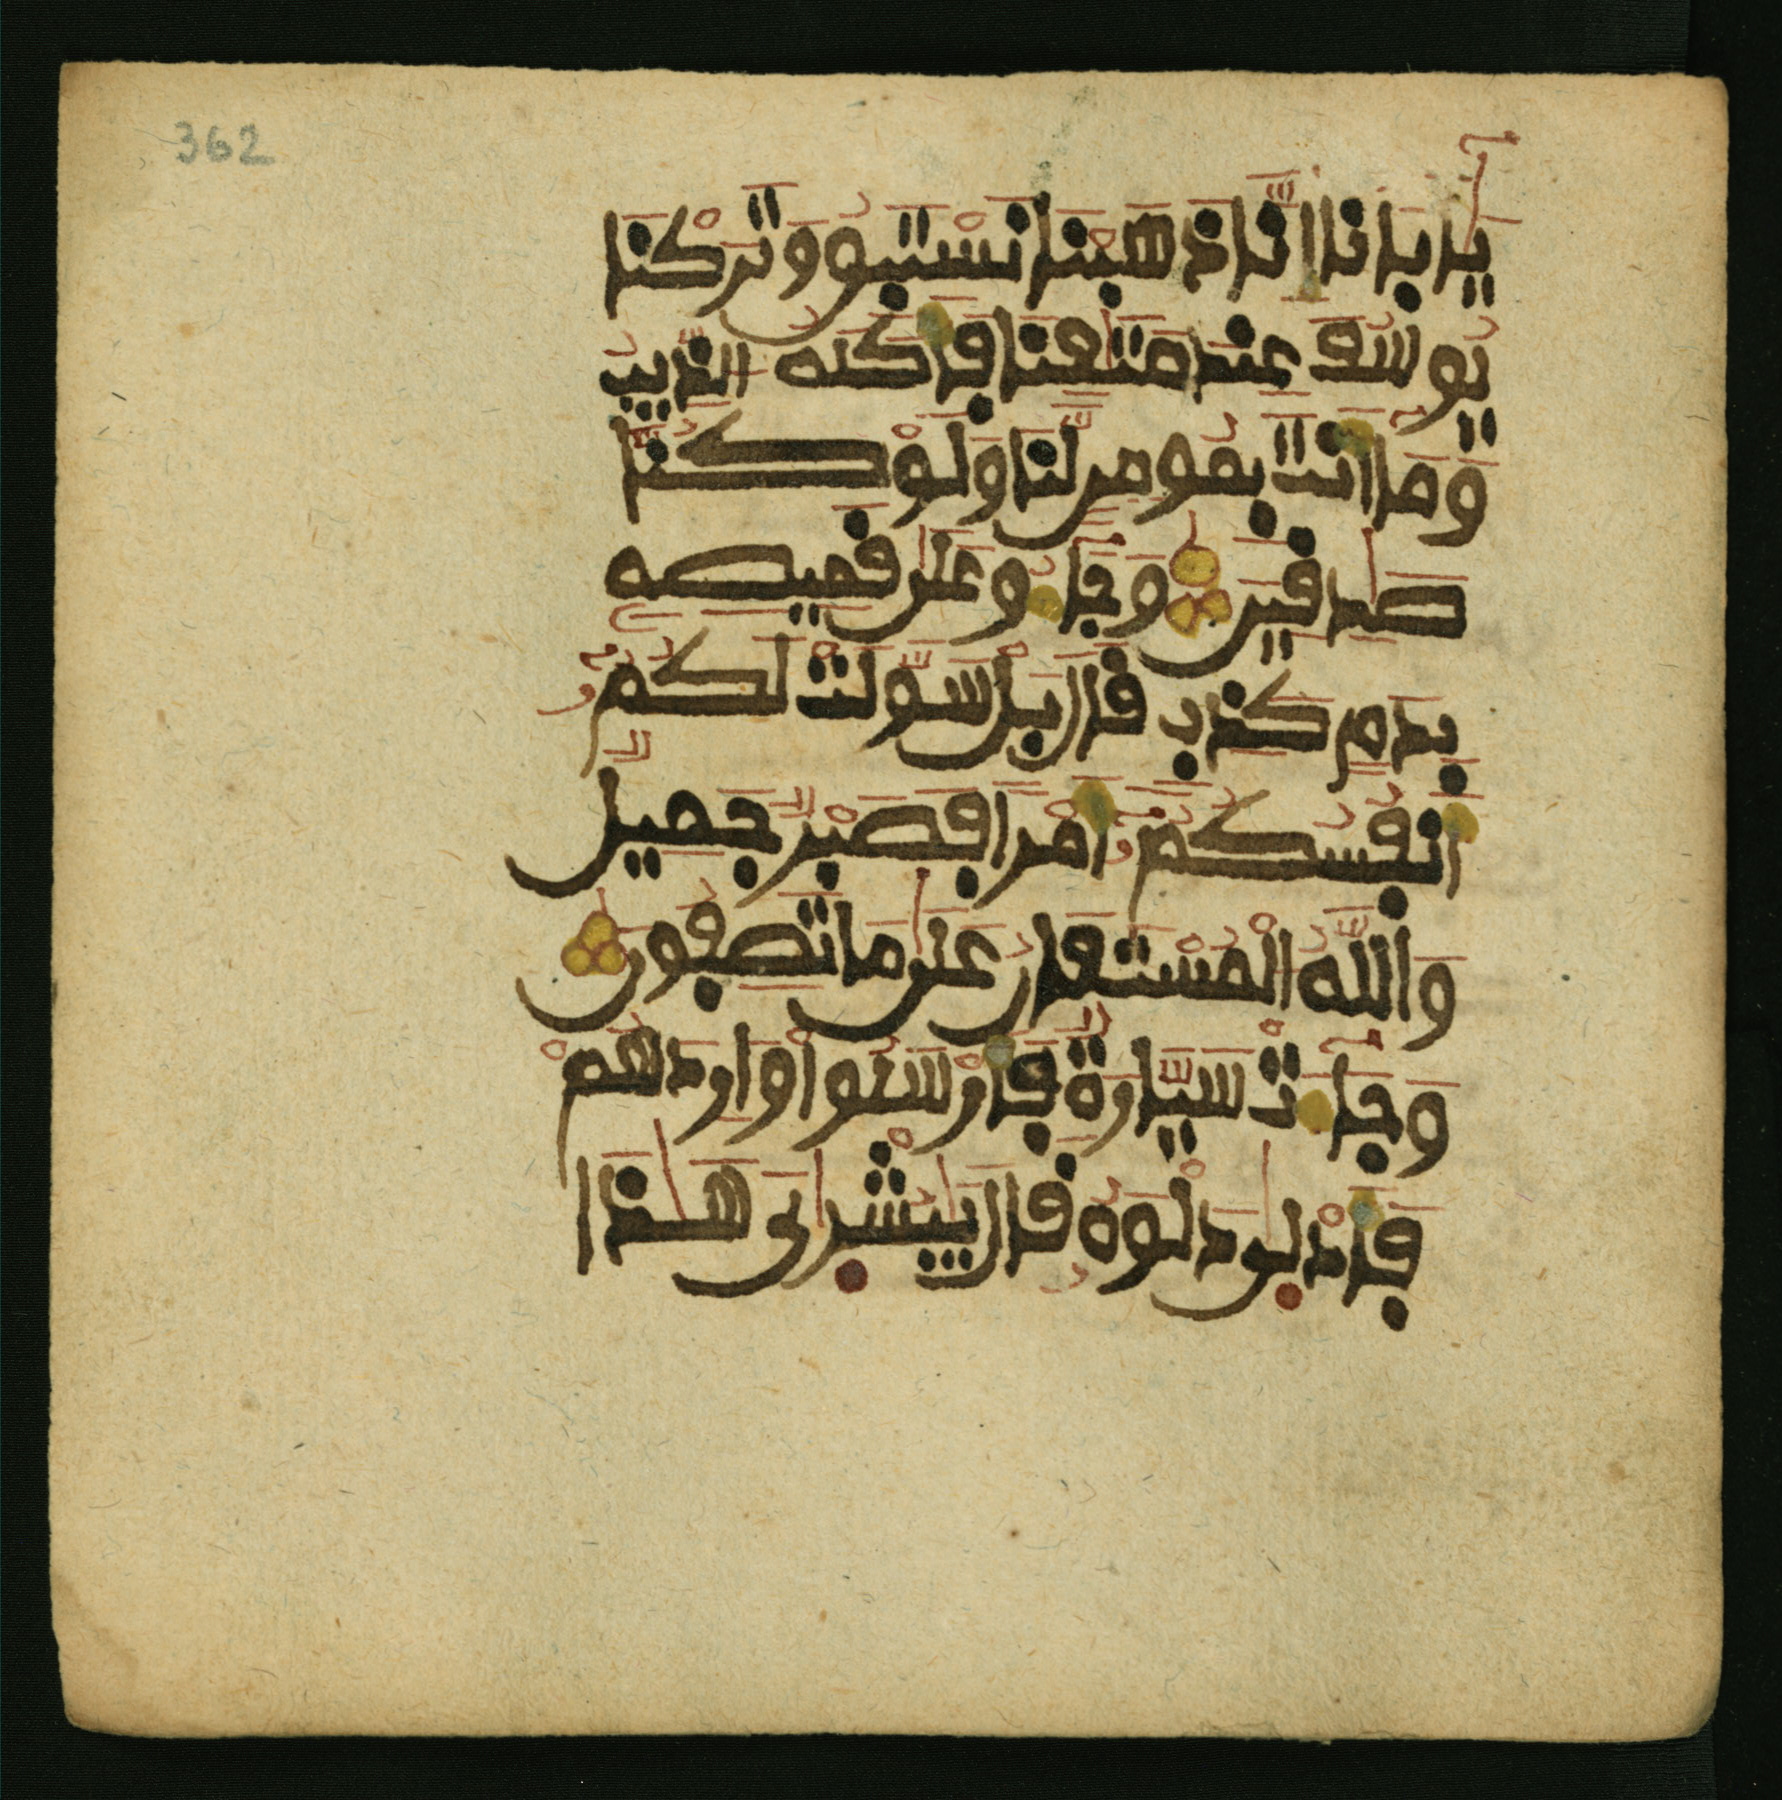 362
يَٰأَبَانَا إِنَّا ذَهَبْنَا نَسْتَبِقُ وَتَرَكْنَا
يُوسُفَ عِندَ مَتَٰعِنَا فَأَكَلَهُ الذِّيبُ
وَمَا أَنتَ بِمُومِنٍ لَّنَا وَلَوْ كُنَّا
صَٰدِقِينَ وَجَاءُو عَلَىٰ قَمِيصِهِ
بِدَمٍ كَذِبٍ قَالَ بَلْ سَوَّلَتْ لَكُمُ
أَنفُسُكُمُ أَمْرًا فَصَبْرٌ جَمِيلٌ
وَاللَّهُ الْمُسْتَعَانُ عَلَىٰ مَا تَصِفُونَ
وَجَاءَتْ سَيَّارَةٌ فَأَرْسَلُوا وَارِدَهُمْ
فَأَدْلَىٰ دَلْوَهُ قَالَ يَٰبُشْرَٰىَ هَٰذَا